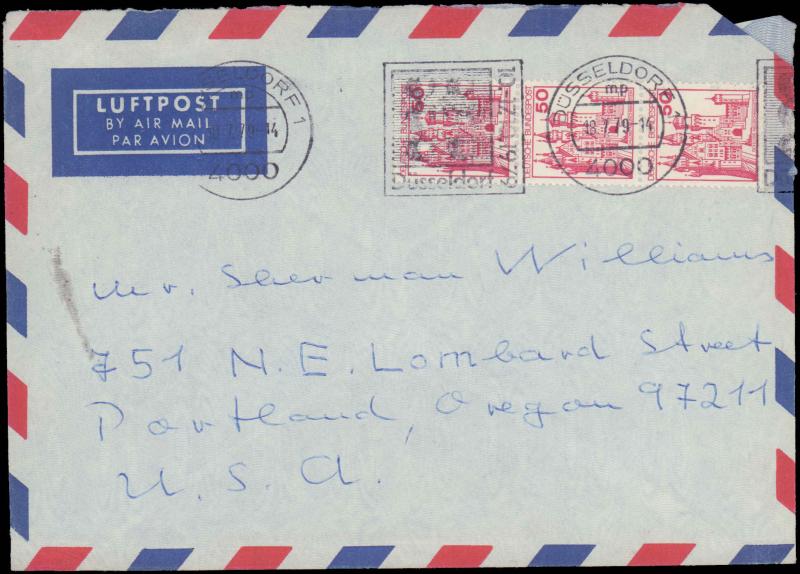 LUFTPOST
BY AIR MAIL
PAR AVION
DÜSSELDORF 1
mp
18.7.79-14
4000
Düsseldorf
50
DEUTSCHE BUNDESPOST
50
DEUTSCHE BUNDESPOST
50
DÜSSELDORF 1
mp
18.7.79-14
4000
Mr. Sherman Williams
751 N.E. Lombard Street
Portland, Oregon 97211
U.S.A.